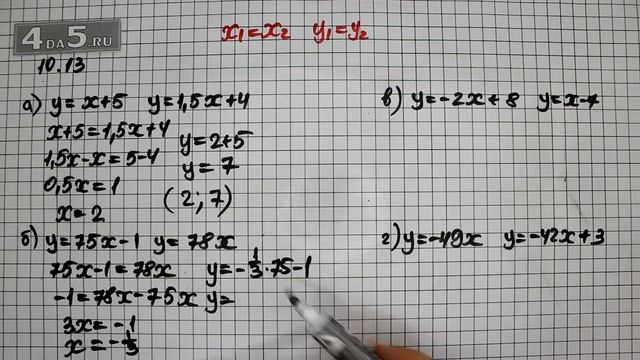 4DA5.RU
x₁=x₂ y₁=y₂
10.13
а) y=x+5 y=1,5x+4
x+5=1,5x+4
1,5x-x=5-4
0,5x=1
x=2
y=2+5
y=7
(2; 7)
б) y=75x-1 y=78x
75x-1=78x
-1=78x-75x
3x=-1
x=-1/3
y=-1/3·75-1
y=
в) y=-2x+8 y=x-4
г) y=-49x y=-42x+3